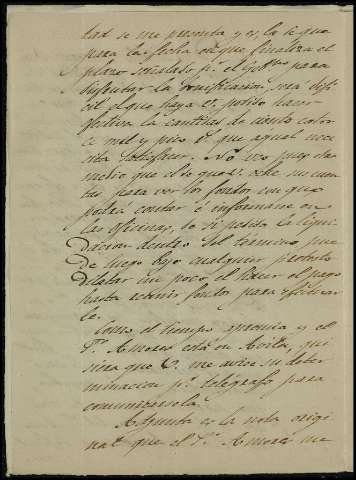 tad se me presenta y es, la de que
para la fecha en que finaliza el
plazo señalado p.r el Gob.no para
disfrutar la bonificacion será difi
cil el que haya V. podido hacer
efectiva la cantidad de ciento
mil y pico r.s que aquel nece
sita satisfacer. No veo pues
medio que el de que V. eche sus cuen
tas para ver los fondos con que
podrá contar é informarse en
las oficinas, de si pedida la liqui
dacion dentro del termino pue
de luego bajo cualquier pretexto
dilatar un poco el hacer el pago
hasta reunir fondos para efectuar
le.
Como el tiempo apremia y el
S.r Amores está en Avila, qui
siera que V. me avise su deter
minacion p.r telégrafo para
comunicarsela.
Adjunta es la nota origi
nal que el S.r Amores me